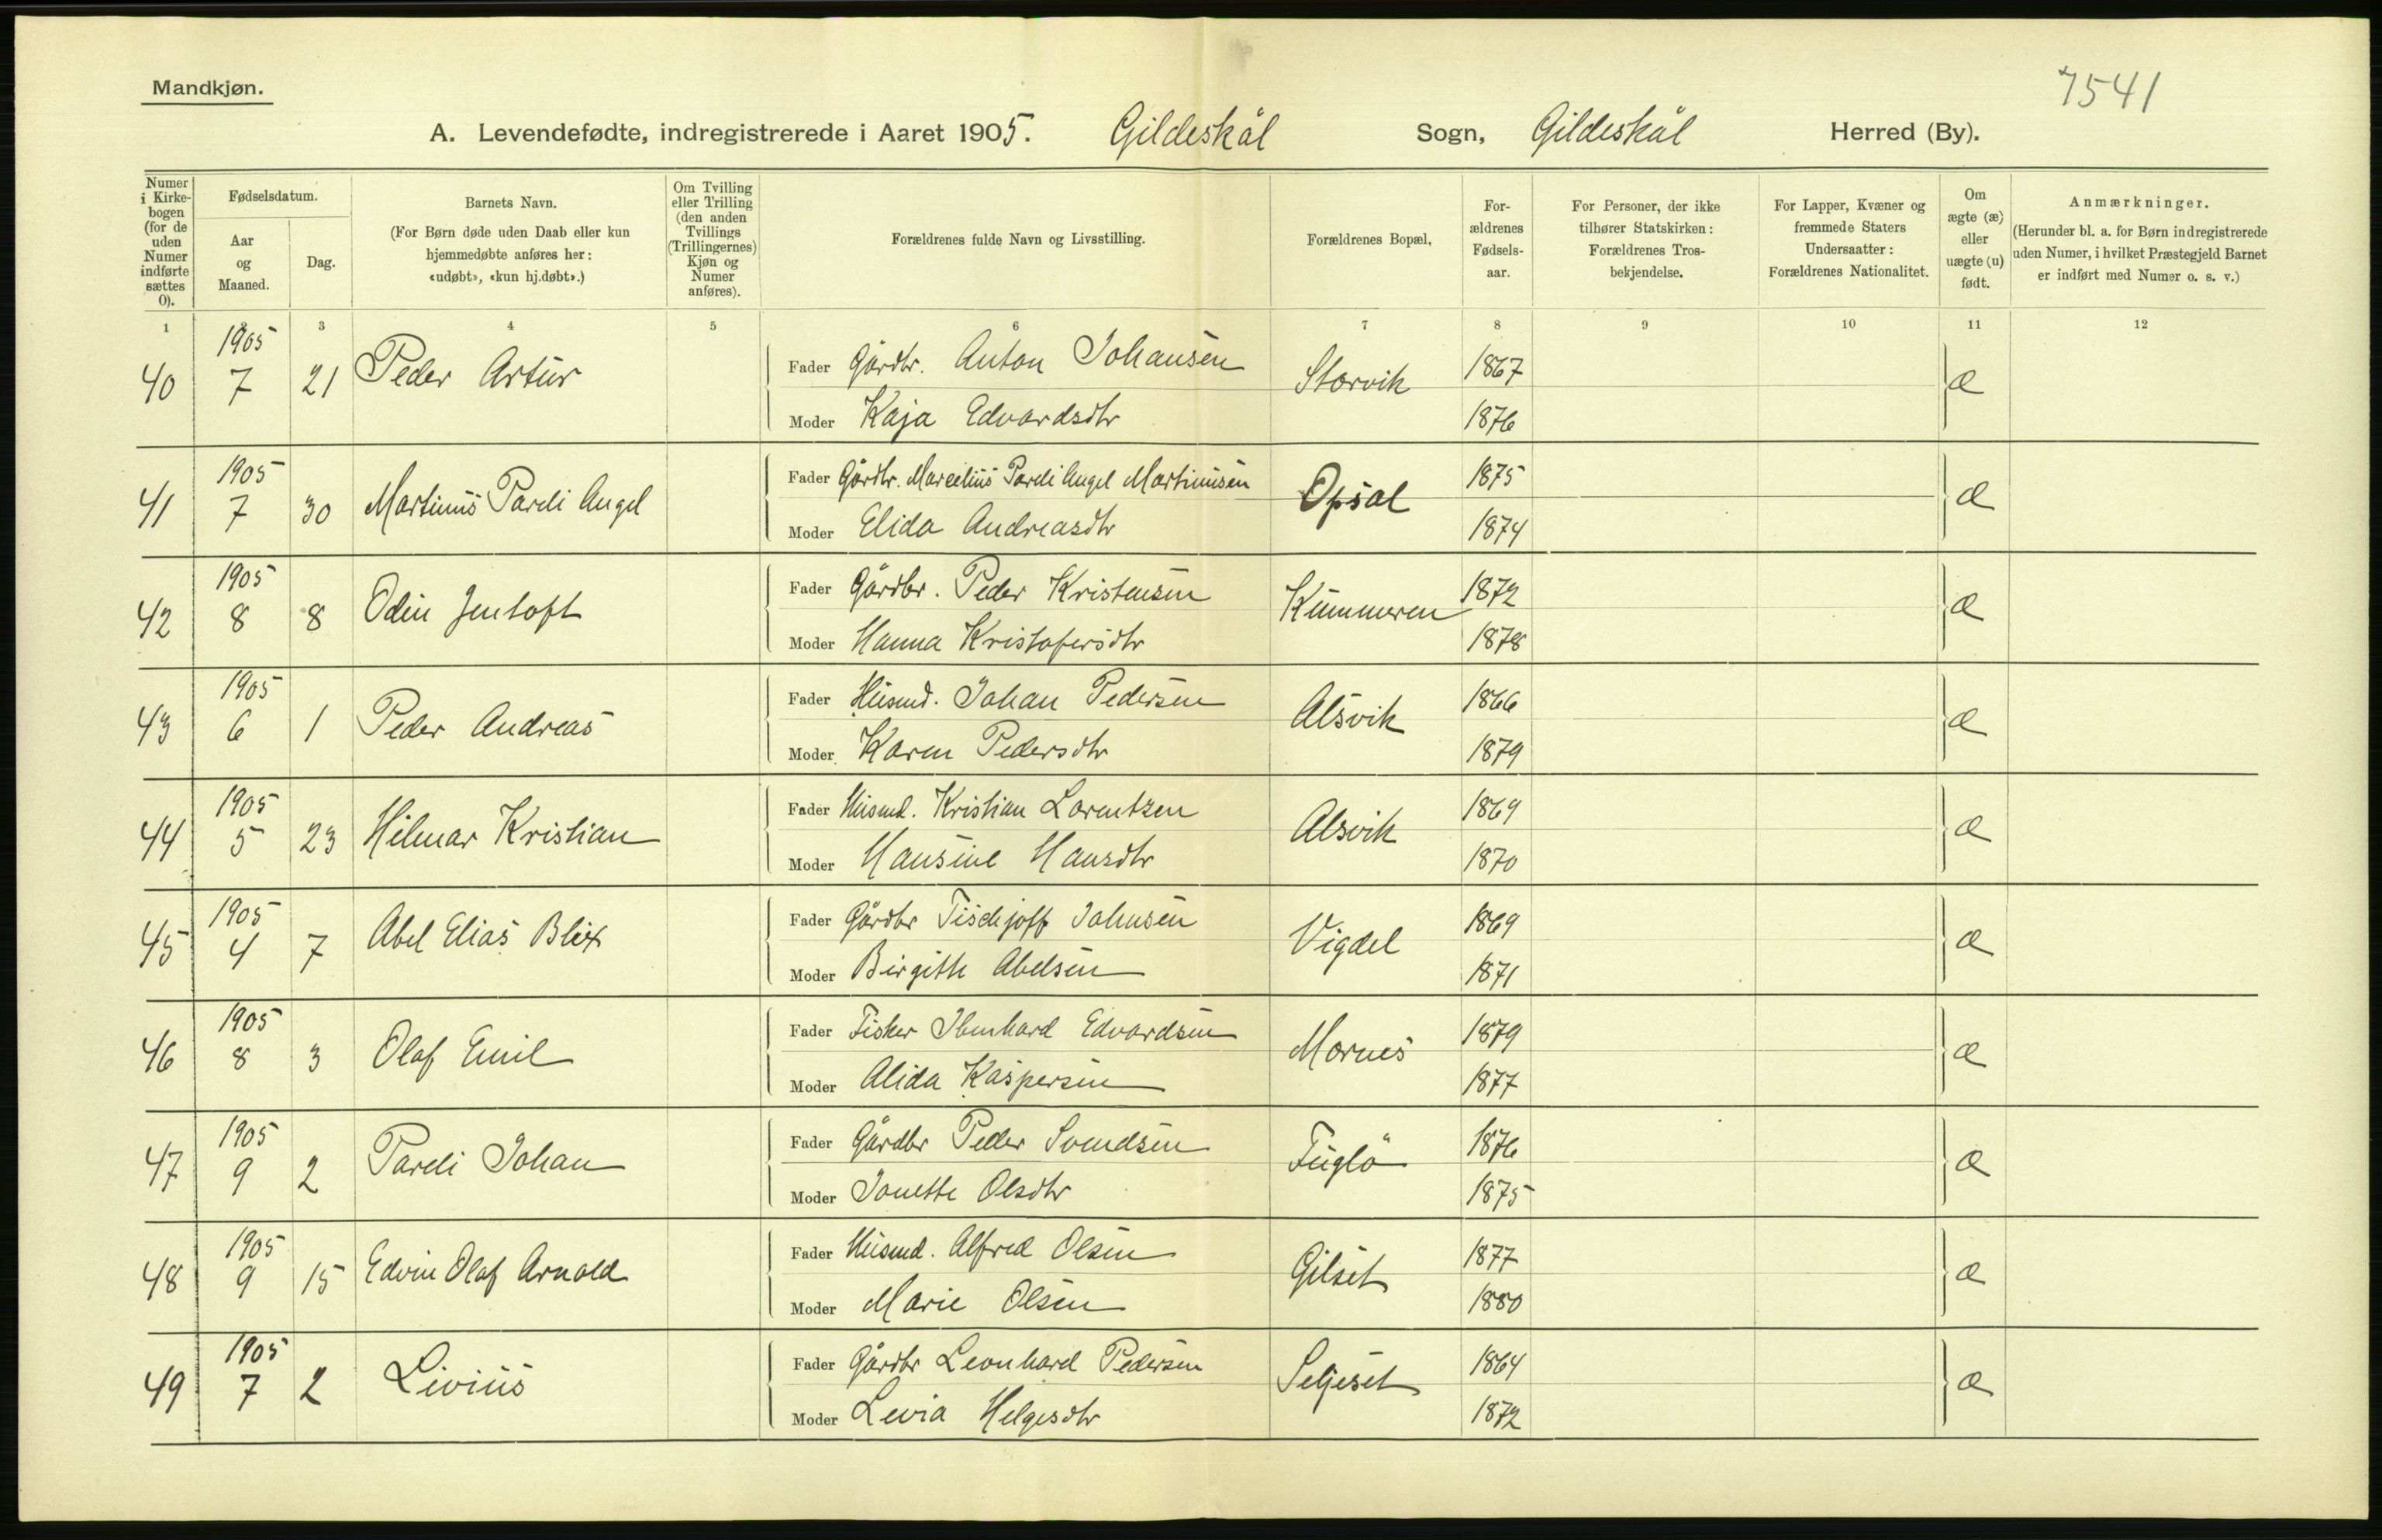 Mandkjøn.
7541
A. Levendefødte, indregistrerede i Aaret 1905. Gildeskål Sogn, Gildeskål Herred (By).
Numer i Kirkebogen (for de uden Numer indførte sættes 0).
Fødselsdatum.
Aar og Maaned.
Dag.
Barnets Navn.
(For Børn døde uden Daab eller kun hjemmedøbte anføres her: «udøbt», «kun hj.døbt».)
Om Tvilling eller Trilling (den anden Tvillings (Trillingernes) Kjøn og Numer anføres).
Forældrenes fulde Navn og Livsstilling.
Forældrenes Bopæl.
Forældrenes Fødselsaar.
For Personer, der ikke tilhører Statskirken: Forældrenes Trosbekjendelse.
For Lapper, Kvæner og fremmede Staters Undersaatter: Forældrenes Nationalitet.
Om ægte (æ) eller uægte (u) født.
Anmærkninger.
(Herunder bl. a. for Børn indregistrerede uden Numer, i hvilket Præstegjeld Barnet er indført med Numer o. s. v.)
1 2 3 4 5 6 7 8 9 10 11 12
40 1905 7 21 Peder Artur Fader Gårdbr. Anton Johansen Storvik 1867 æ
Moder Kaja Edvardsdtr 1876
41 1905 7 30 Martinus Pareli Angel Fader Gårdbr. Marcelius Pareli Angel Martinusen Opsal 1875 æ
Moder Elida Andreasdtr 1874
42 1905 8 8 Odin Jentoft Fader Gårdbr. Peder Kristensen Kummeren 1872 æ
Moder Hanna Kristofersdtr 1878
43 1905 6 1 Peder Andreas Fader Husmd. Johan Pedersen Alsvik 1866 æ
Moder Karen Pedersdtr 1879
44 1905 5 23 Hilmar Kristian Fader Husmd. Kristian Lorentzen Alsvik 1869 æ
Moder Hansine Hansdtr 1870
45 1905 4 7 Abel Elias Blix Fader Gårdbr Johnsen Vigdel 1869 æ
Moder Birgitte Abelsen 1871
46 1905 8 3 Olaf Emil Fader Fisker Ibenhard Edvardsen Mornes 1879 æ
Moder Alida Kaspersen 1877
47 1905 9 2 Pareli Johan Fader Gårdbr Peder Svendsen Fuglö 1876 æ
Moder Jonette Olsdtr 1875
48 1905 9 15 Edvin Olaf Arnold Fader Husmd. Alfred Olsen Gilset 1877 æ
Moder Marie Olsen 1880
49 1905 7 2 Livius Fader Gårdbr Leonhard Pedersen Seljeset 1864 æ
Moder Levia Helgesdtr 1872